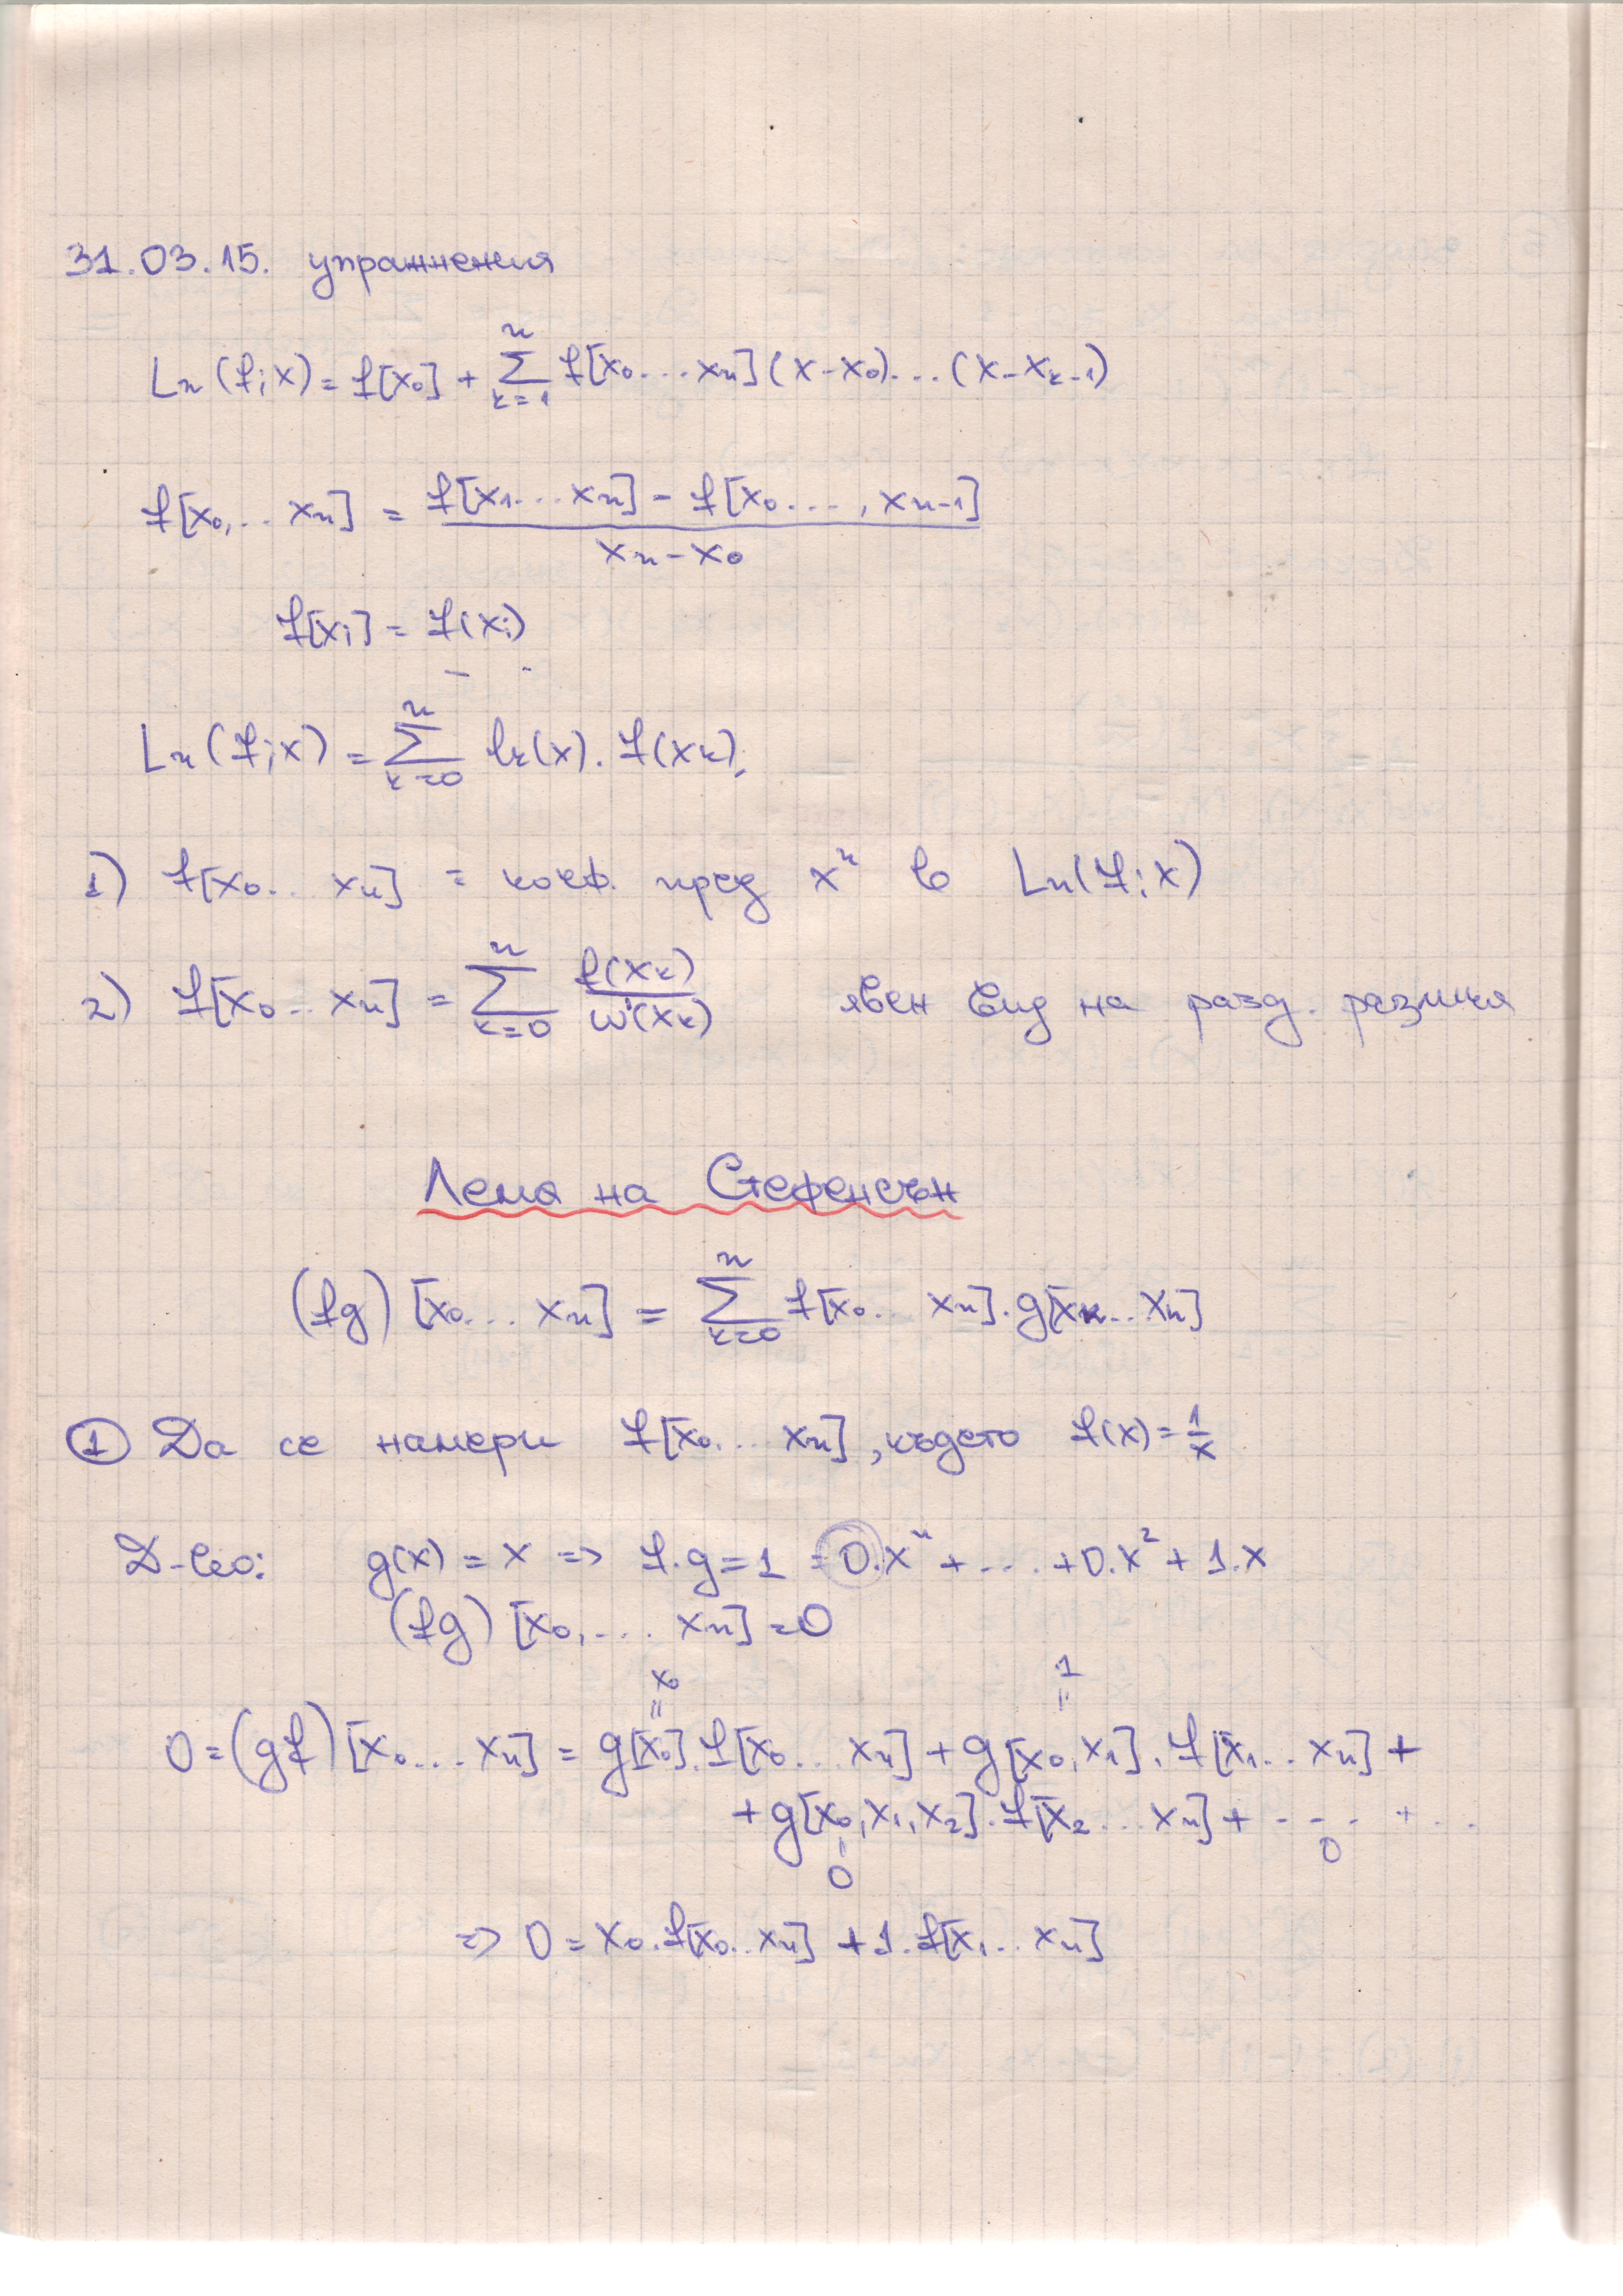 31.03.15. упражнения
Ln(f;x) = f[x₀] + ∑ₖ₌₁ⁿ f[x₀...xₙ](x-x₀)...(x-xₖ₋₁)
f[x₀,...xₙ] = (f[x₁...xₙ] - f[x₀...,xₙ₋₁]) / (xₙ-x₀)
f[xᵢ] = f(xᵢ)
Ln(f;x) = ∑ₖ₌₀ⁿ lₖ(x).f(xₖ),
1) f[x₀...xₙ] = коеф. пред xⁿ в Ln(f;x)
2) f[x₀...xₙ] = ∑ₖ₌₀ⁿ f(xₖ)/ω'(xₖ) явен вид на разд. разлика
Лема на Стефенсън
(fg)[x₀...xₙ] = ∑ₖ₌₀ⁿ f[x₀...xₙ].g[xₖ...xₙ]
① Да се намери f[x₀...xₙ], където f(x)=1/x
Д-во: g(x) = x => f.g=1 = 0.xⁿ + ... +0.x² + 1.x
(fg)[x₀,...xₙ]=0
x₀ 1
" "
0=(gf)[x₀...xₙ] = g[x₀].f[x₀...xₙ] + g[x₀,x₁].f[x₁...xₙ] +
+ g[x₀,x₁,x₂].f[x₂...xₙ] + .... + ..
0 0
=> 0 = x₀.f[x₀...xₙ] + 1.f[x₁...xₙ]